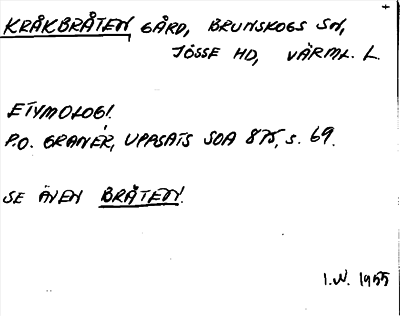 KRÅKBRÅTEN GÅRD, BRUNSKOGS SN,
JÖSSE HD, VÄRML. L.
ETYMOLOGI.
P.O. GRANÉR, UPPSATS SOA 875, s. 69.
SE ÄVEN BRÅTEN.
I.W. 1955